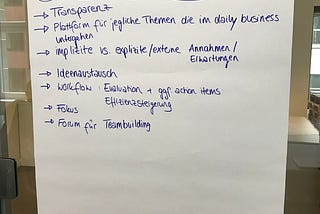 → Transparenz
→ Plattform für jegliche Themen die im daily business
untergehen
→ implizite vs. explizite/externe Annahmen/
Erwartungen
→ Ideenaustausch
→ Workflow: Evaluation + ggf. action items
Effizienzsteigerung
→ Fokus
→ Forum für Teambuilding